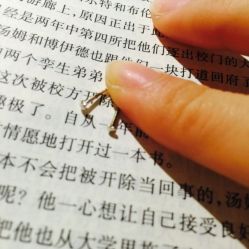 游廊上,原因正出于此
是两年中第四所把他们逐出校门的大
汤姆和博伊德也跟他们一块打道回府
两个孪生弟
这次被校方开除
趣极了。自从
情愿地打开过一本书。
本不会把被开除当回事的,汤姆
呢?他一心想让自己接受良好
把他也从大学里拖了